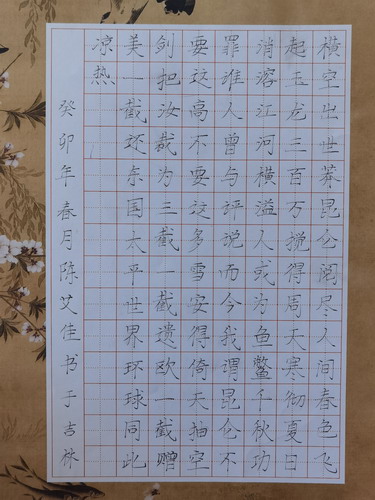 横空出世莽昆仑阅尽人间春色飞
起玉龙三百万搅得周天寒彻夏日
消溶江河横溢人或为鱼鳖千秋功
罪谁人曾与评说而今我谓昆仑不
要这高不要这多雪安得倚天抽空
剑把汝裁为三截一截遗欧一截赠
美一截还东国太平世界环球同此
凉热
癸卯年春月陈艾佳书于吉林